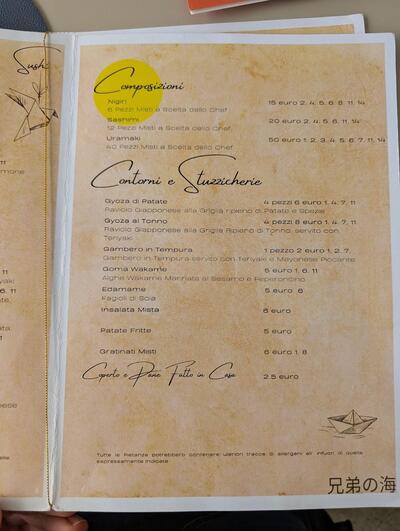 Sushi
Composizioni
Nigiri 15 euro 2, 4, 5, 6, 8, 11, 14
6 Pezzi Misti a Scelta dello Chef
Sashimi 20 euro 2, 4, 5, 6, 11, 14
12 Pezzi Misti a Scelta dello Chef
Uramaki 50 euro 1, 2, 3, 4, 5, 6, 7, 11, 14
40 Pezzi Misti a Scelta dello Chef
Contorni e Stuzzicherie
Gyoza di Patate 4 pezzi 6 euro 1, 4, 7, 11
Raviolo Giapponese alla Griglia ripieno di Patate e Spezie
Gyoza al Tonno 4 pezzi 8 euro 1, 4, 7, 11
Raviolo Giapponese alla Griglia Ripieno di Tonno, servito con
Teriyaki
Gambero in Tempura 1 pezzo 2 euro 1, 2, 7,
Gambero in Tempura servito con Teriyaki e Mayonese Piccante
Goma Wakame 5 euro 1, 6, 11
Alghe Wakame Marinata al Sesamo e Peperoncino
Edamame 5 euro 6
Fagioli di Soia
Insalata Mista 6 euro
Patate Fritte 5 euro
Gratinati Misti 6 euro 1, 8
Coperto e Pane Fatto in Casa 2.5 euro
Tutte le Pietanze potrebbero contenere ulteriori tracce di allergeni all' infuori di quelle
espressamente indicate
兄弟の海